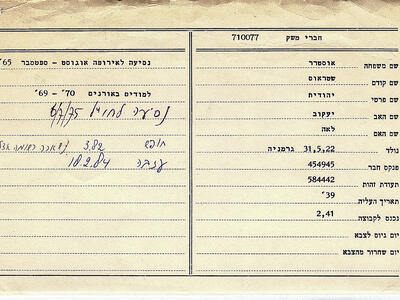 חברי משק 710077
שם משפחה אוסטרר
שם קודם שטראוס
שם פרטי יהודית
שם האב יעקוב
שם האם לאה
נולד 31,5,22 גרמניה
פנקס חבר 454945
תעודת זהות 584442
תאריך העליה 39'
נכנס לקבוצה 2,41
יום גיוס לצבא
יום שחרור מהצבא
נסיעה לאירופה אוגוסט - ספטמבר 65'
למודים באורנים 70' - 69'
נסיעה לחו"ל 6/7/75
חופש 3.82 נשארה רשומה
עזבה 18.2.84